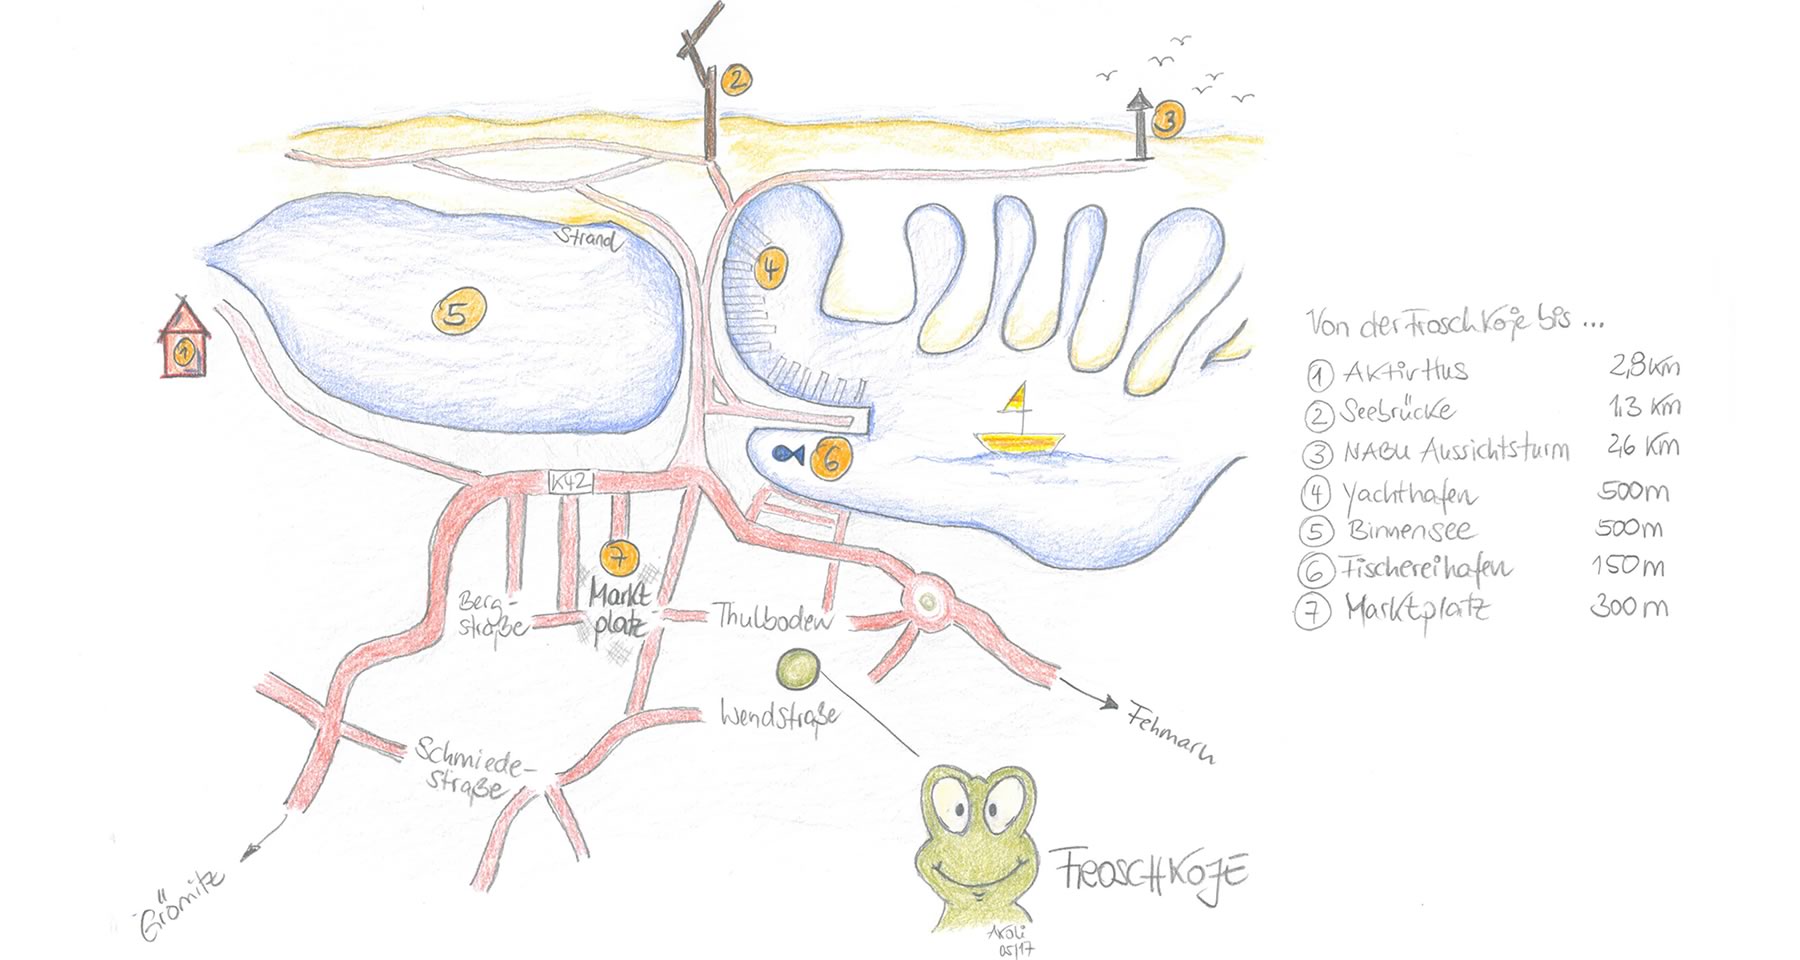 2
3
Strand
4
5
1
6
K42
7
Markt
platz
Berg-
straße
Thulboden
Wendstraße
Schmiede-
straße
Fehmarn
Grömitz
FROSCHKOJE
AKöli
05/17
Von der FroschKoje bis ...
1 AktivHus 2,8 km
2 Seebrücke 1,3 km
3 NABU Aussichtsturm 2,6 km
4 Yachthafen 500 m
5 Binnensee 500 m
6 Fischereihafen 150 m
7 Marktplatz 300 m